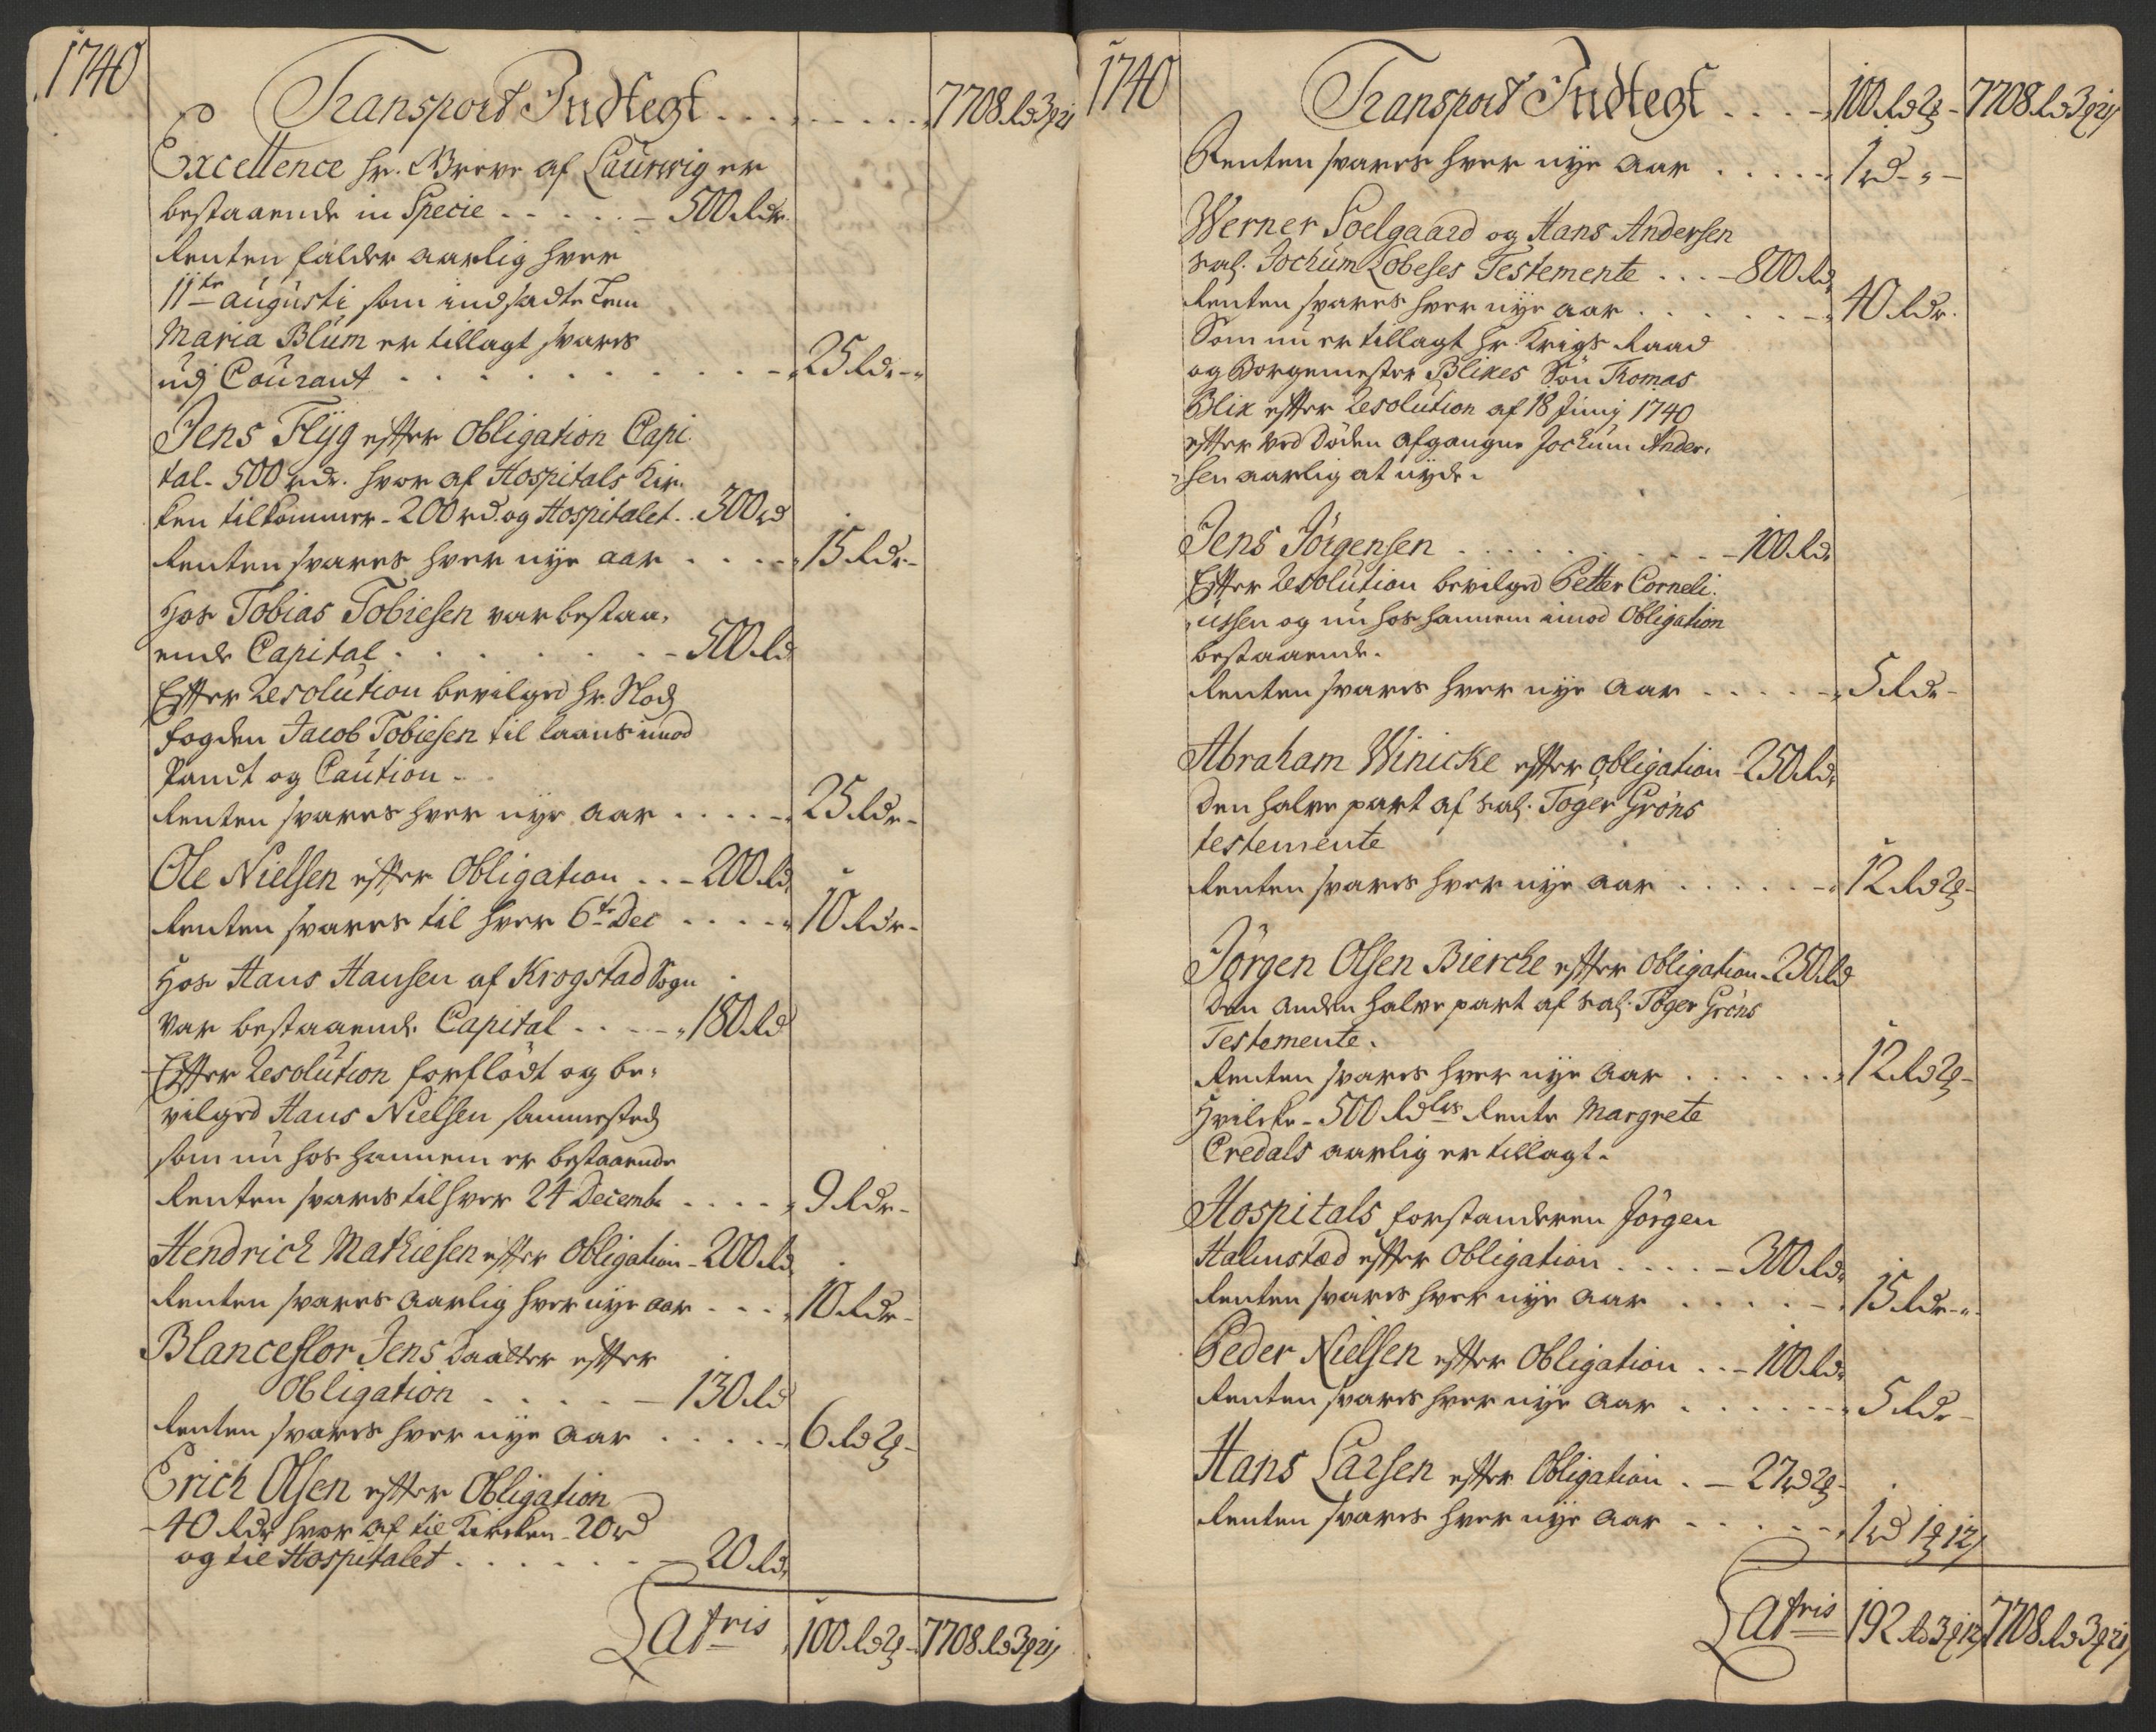 1740
Transport Indtegt . . . . . . . . 7708 Rd 3
Excellence hr. Greve af Laurwig er
bestaaende in Specie . . . . . - 500 Rdr.
Renten falder aarlig hver
11te augusti som indsadte
Maria Blüm er tillagt svares
udj Courant . . . . . . . . . . 25 Rdr
Jens Flÿg efter Obligation Capi
tal - 500 rdr. hvor af Hospitals Kir
ken tilkommer - 200 rd. og Hospitalet . . 300 rd
Renten svares hver nye aar . . . . 15 Rdr -
Hos Tobias Tobiesen var bestaa,
ende Capital . . . . . . . - 500 Rd
Efter Resolution bevilged hr. Slods
fogden Jacob Tobiesen til laans imod
Pandt og Caution -
Renten svares hver nye aar . . . . 25 Rdr -
Ole Nielsen efter Obligation . . - 200 Rd
Renten svares til hver 6te Dec . . . . 10 Rdr -
Hos Hans Hansen af Krogstad Sogn
var bestaaende Capital . . . - 180 Rd
Efter Resolution forflödt og be,
vilged Hans Nielsen sammesteds
som nu hos hannem er bestaaende
Renten svares til hver 24 Decemb . . . . 9 Rdr -
Hendrich Mathiesen efter Obligation - 200 Rd
Renten svares aarlig hver nye aar . . . 10 Rdr -
Blanceflor Jens Daatter efter
Obligation . . . . . - 130 Rd
Renten svares hver nye aar . . . . . 6 Rd 2 -
Erich Olsen efter Obligation
- 40 Rdr hvor af til Kircken - 20 rd
og til Hospitalet . . . . . . - 20 Rd
Latris 100 Rd 2 - 7708 Rd 3
1740
Transport Indtegt . . . . 100 Rd 2 - 7708 Rd 3
Renten svares hver nye aar . . . . . 1 rd - „ -
Werner Soelgaard og Hans Andersen
sal. Jochum Lobeses Testemente . . . - 800 Rd
Renten svares hver nye aar . . . . . . 40 Rdr.
Som nu er tillagt Hr. Krigs Raad
og Borgemester Blikes Sön Thomas
Blix efter Resolution af 18 Junij 1740
efter ved Döden afgangne Jochum Ander,
sen aarlig at nyde.
Jens Jörgensen . . . . . . . . . - 100 Rd
Efter Resolution bevilged Petter Corneli
ussen og nu hos hannem imod Obligation
bestaaende.
Renten svares hver nye aar . . . . . 5 Rdr -
Abraham Winicke efter obligation - 250 Rd
Den halve part af sal. Töger Gröns
testemente
Renten svares hver nye aar . . . . . . 12 Rd 2 -
Jörgen Olsen Bierche efter Obligation - 250 Rd
Den anden halve part af sal. Töger Gröns
Testemente.
Renten svares hver nye aar . . . . . . 12 Rd 2 -
Hvilcke - 500 Rdlrs Rente Margrete
Credals aarlig er tillagt.
Hospitals forstanderen Jörgen
Halmstad efter Obligation . . . . - 300 Rd
Renten svares hver nye aar . . . . . 15 Rdr - „ -
Peder Nielsen efter Obligation . . - 100 Rd
Renten svares hver nye aar . . . . . . 5 Rdr -
Hans Larsen efter Obligation . - 27 rd 2 -
Renten svares hver nye aar . . . . . 1 rd 1 12
Latris 192 Rd 3 12 7708 Rd 3